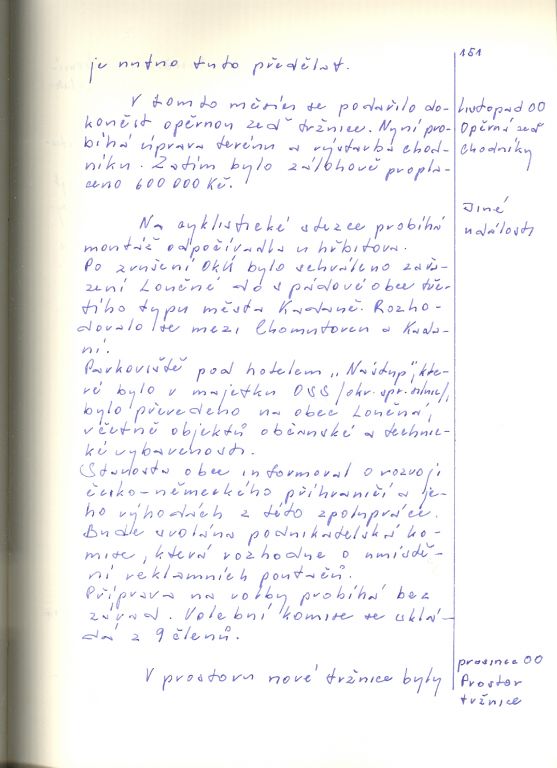 151
je nutno tuto předělat.
V tomto měsíci se podařilo do-
končit opěrnou zeď tržnice. Nyní pro-
bíhá úprava terénu a výstavba chod-
níku. Zatím bylo zálohově propla-
ceno 600 000 Kč.
listopad 00
Opěrná zeď
chodníky
Na cyklistické stezce probíhá
montáž odpočívadla u hřbitova.
Po zrušení OkÚ bylo schváleno zařa-
zení Loučné do spádové obce tře-
tího typu města Kadaně. Rozho-
dovalo se mezi Chomutovem a Kada-
ní.
Jiné
události
Parkoviště pod hotelem „Nástup", kte-
ré bylo v majetku OSS /okr. spr. silnic/,
bylo převedeno na obec Loučná,
včetně objektů občanské a technic-
ké vybavenosti.
Starosta obce informoval o rozvoji
česko-německého příhraničí a je-
ho výhodách z této spolupráce.
Bude svolána podnikatelská ko-
mise, která rozhodne o umístě-
ní reklamních poutačů.
Příprava na volby probíhá bez
závad. Volební komise se sklá-
dá z 9 členů.
V prostoru nové tržnice byly
prosinec 00
Prostor
tržnice